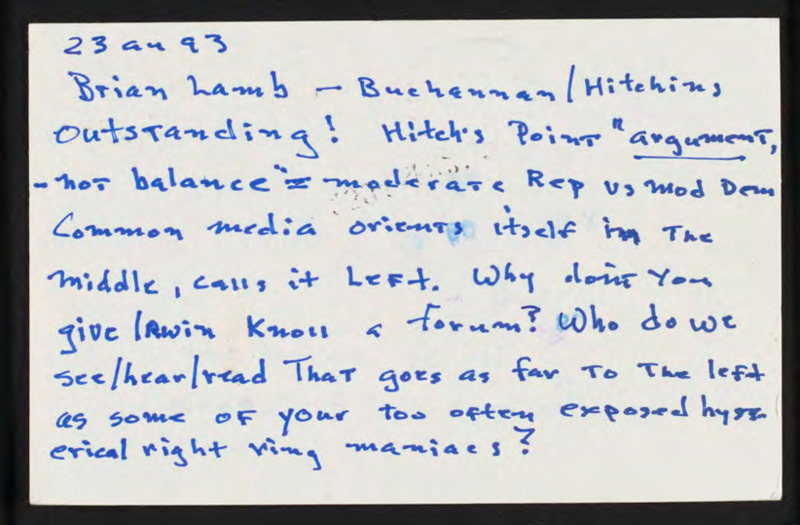 23 au 93
Brian Lamb — Buchannan/Hitchins
Outstanding! Hitch's Point "argument,
- not balance" = moderate Rep vs mod Dem
Common media orients itself in The
middle, calls it Left. Why don't You
give Irwin Knoll a forum? Who do we
see/hear/read That goes as far To The left
as some of your too often exposed hyst-
erical right wing maniacs?